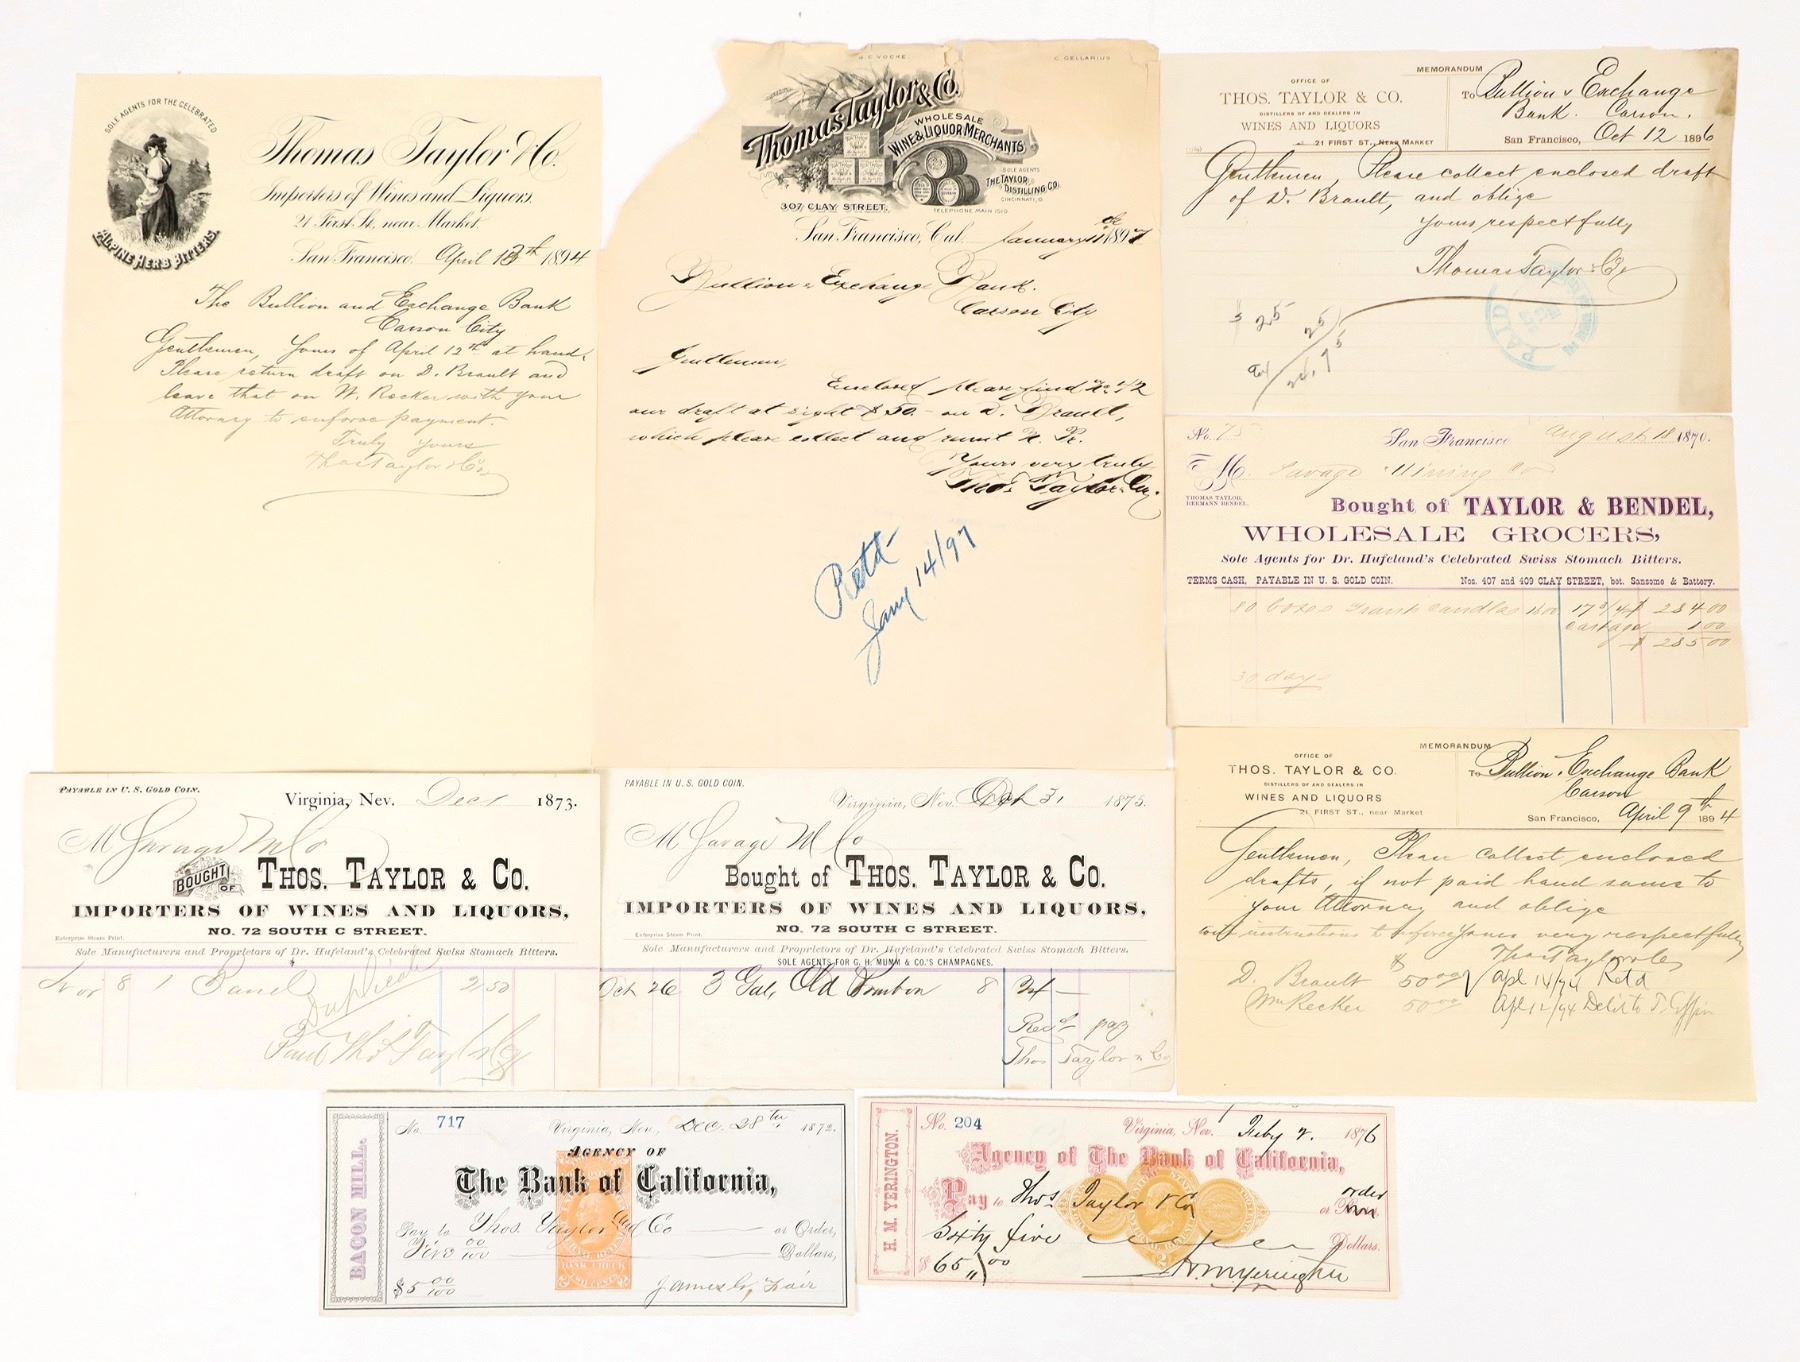 SOLE AGENTS FOR THE CELEBRATED
ALPINE HERB BITTERS.
Thomas Taylor & Co.
Importers of Wines and Liquors,
21 First St., near Market.
San Francisco, April 13th 1894
The Bullion and Exchange Bank
Carson City
Gentlemen, Yours of April 12th at hand,
Please return draft on D. Brault and
leave that on W. Recker with your
Attorney to enforce payment.
Truly Yours
Thos Taylor & Co
H. C. VOCKE.
C. CELLARIUS
Thomas Taylor & Co.
WHOLESALE
WINE & LIQUOR MERCHANTS
SOLE AGENTS
THE TAYLOR
DISTILLING CO.
CINCINNATI, O.
307 CLAY STREET.
TELEPHONE MAIN 1510
San Francisco, Cal. January 1897
Bullion & Exchange Bank.
Carson City
Gentlemen,
Enclosed please find No. 42
our draft at sight $50.- on D. Brault,
which please collect and remit
Yours very truly
Thos Taylor & Co.
Retd
Jany 14/97
MEMORANDUM
OFFICE OF
THOS. TAYLOR & CO.
DISTILLERS OF AND DEALERS IN
WINES AND LIQUORS
21 FIRST ST., NEAR MARKET
To Bullion & Exchange
Bank. Carson.
San Francisco, Oct 12 1896
Gentlemen, Please collect enclosed draft
of D. Brault, and oblige
Yours respectfully
Thomas Taylor & Co
PAID
$ 25
25
24.75
No. 75
San Francisco August 18 1870.
M Savage Mining Co
THOMAS TAYLOR,
HERMANN BENDEL.
Bought of TAYLOR & BENDEL,
WHOLESALE GROCERS,
Sole Agents for Dr. Hufeland's Celebrated Swiss Stomach Bitters.
TERMS CASH, PAYABLE IN U. S. GOLD COIN.
Nos. 407 and 409 CLAY STREET, bet. Sansome & Battery.
80 boxes candles 1600 17 3/4 $ 284.00
Cartage 1.00
$ 285.00
30 days
MEMORANDUM
OFFICE OF
THOS. TAYLOR & CO.
DISTILLERS OF AND DEALERS IN
WINES AND LIQUORS
21 FIRST ST., near Market
To Bullion & Exchange Bank
Carson
San Francisco, April 9th 1894
Gentlemen, Please collect enclosed
drafts, if not paid hand same to
your Attorney and oblige
with instructions to enforce Yours very respectfully
Thos Taylor & Co
D. Brault $ 50.00 Apl 14/94 Retd
Wm Recker 50.00 Apl 12/94 Delid to
PAYABLE IN U. S. GOLD COIN.
Virginia, Nev. Dec 1 1873.
M Savage M Co
BOUGHT OF THOS. TAYLOR & CO.
IMPORTERS OF WINES AND LIQUORS,
NO. 72 SOUTH C STREET.
Enterprise Steam Print.
Sole Manufacturers and Proprietors of Dr. Hufeland's Celebrated Swiss Stomach Bitters.
$
Nov 8 1 Barrel 2 50
Duplicate
Paid Thos Taylor & Co
PAYABLE IN U. S. GOLD COIN.
Virginia, Nev. Oct 31 1875.
M Savage M Co
Bought of THOS. TAYLOR & CO.
IMPORTERS OF WINES AND LIQUORS,
NO. 72 SOUTH C STREET.
Enterprise Steam Print.
Sole Manufacturers and Proprietors of Dr. Hufeland's Celebrated Swiss Stomach Bitters.
SOLE AGENTS FOR G. H. MUMM & CO.'S CHAMPAGNES.
Oct 26 3 Gal. Old Bourbon 8 24 —
Recd pay
Thos Taylor & Co
BACON MILL.
No. 717
Virginia, Nev., Dec. 28th 1872.
AGENCY OF
The Bank of California,
Pay to Thos. Taylor and Co or Order,
Five 00/100 Dollars,
BANK CHECK
$5 00/100
James G. Fair
H. M. YERINGTON.
No. 204
Virginia, Nev. Feby 2 1876
Agency of The Bank of California,
Pay to Thos Taylor & Co or order
Sixty five Dollars.
$65.00
H M Yerington